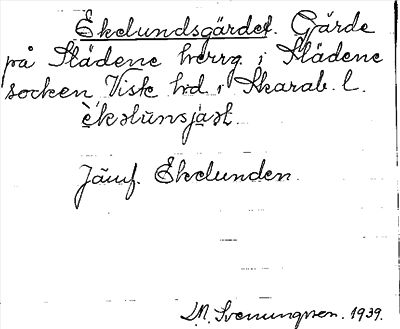 Ekelundsgärdet. Gärde
på Slädene herrg. i Slädene
socken Viste hd. i Skarab. l.
èkəlùnsjäśt.
Jämf. Ekelunden.
D.M. Svenungsson. 1939.